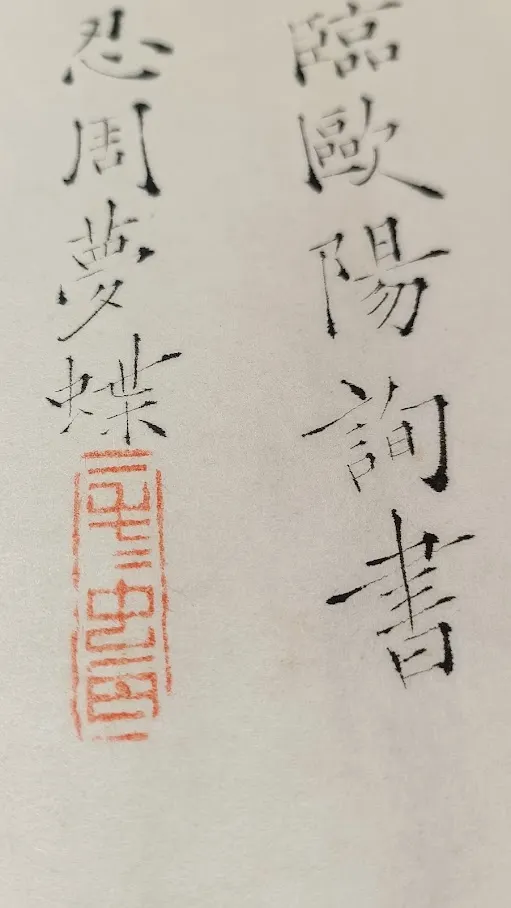 臨歐陽詢書
忍周夢蝶